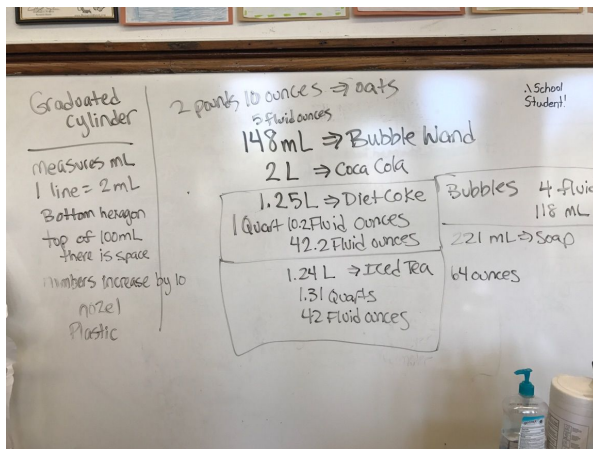 Graduated
cylinder
measures mL
1 line = 2mL
Bottom hexagon
top of 100mL
there is space
numbers increase by 10
nozel
Plastic
2 pounds 10 ounces ⇒ oats
5 fluid ounces
148 mL ⇒ Bubble Wand
2 L ⇒ Coca Cola
1.25L ⇒ Diet Coke
1 Quart 10.2 Fluid Ounces
42.2 Fluid ounces
1.24 L ⇒ Iced Tea
1.31 Quarts
42 Fluid ounces
School
Student!
Bubbles 4 fluid
118 mL
221 mL ⇒ Soap
64 ounces